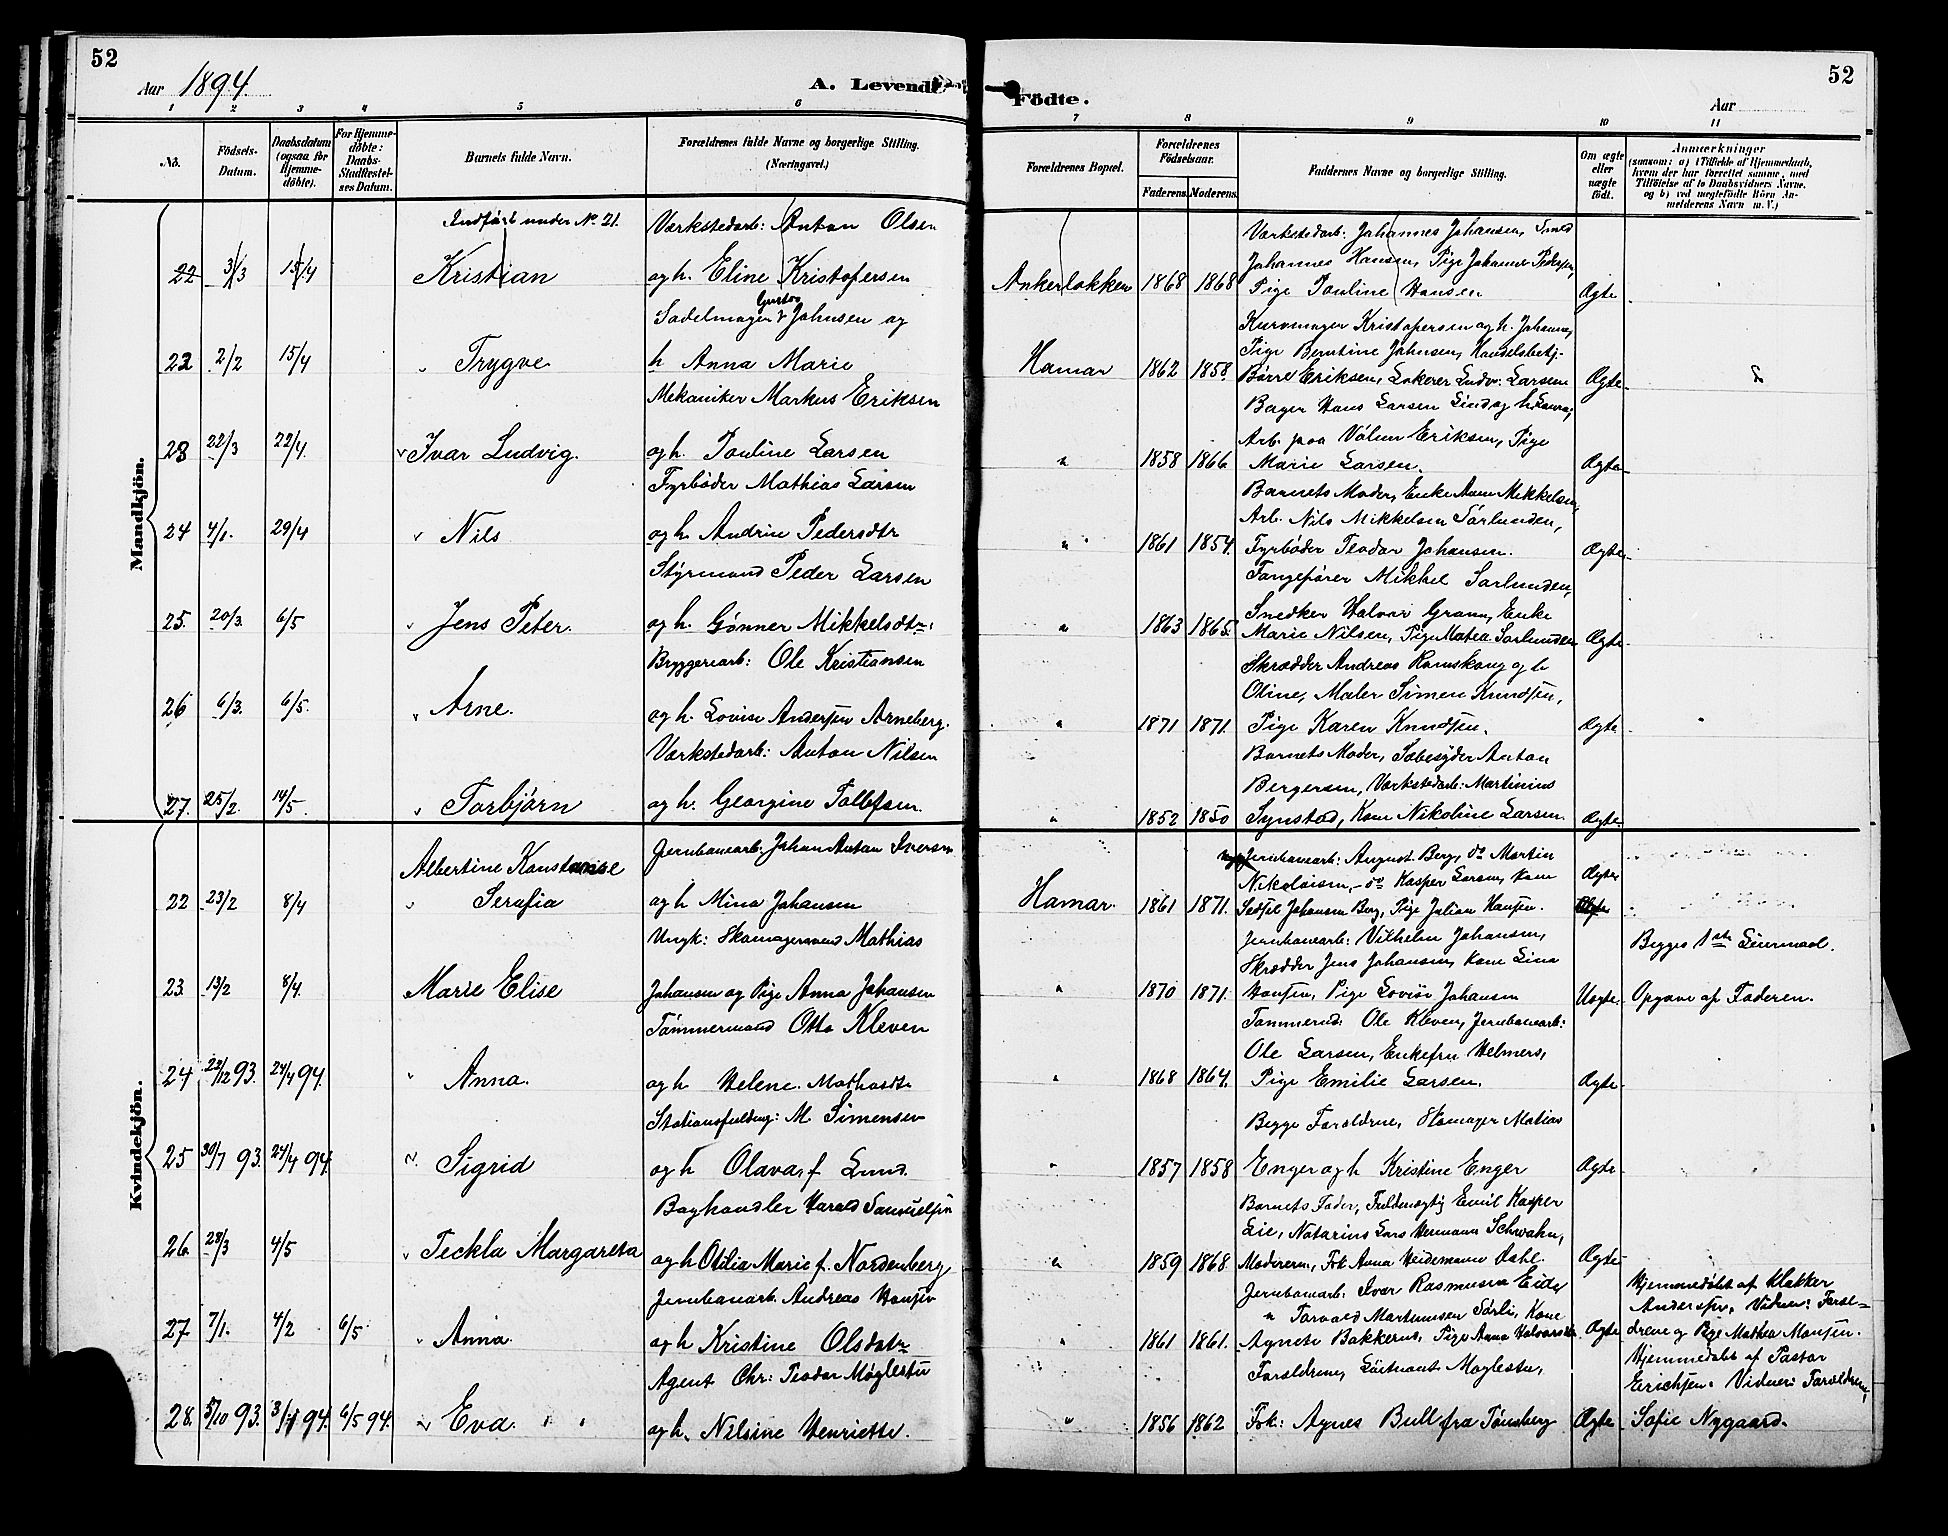 52
Aar 1894.
A. Levende
Födte.
Aar
52
1 2 3 4 5 6 7 8 9 10 11
No.
Födsels-Datum.
Daabsdatum (ogsaa for Hjemme-döbte).
For Hjemme-döbte: Daabs-Stadfestel-ses Datum.
Barnets fulde Navn.
Forældrenes fulde Navne og borgerlige Stilling. (Næringsvei.)
Forældrenes Bopæl.
Forældrenes Födselsaar.
Faderens. Moderens.
Faddernes Navne og borgerlige Stilling.
Om ægte eller uægte födt.
Anmærkninger
(saasom: a) i Tilfælde af Hjemmedaab, hvem der har forrettet samme, med Tilföielse af to Daabsvidners Navne, og b) ved uegtefödte Börn An-melderens Navn m. V.)
Mandkjön.
Indført under No. 21.
22 3/3 15/4 Kristian
Værkstedarb: Anton Olsen
og h. Eline Kristofersen
Ankerløkken 1868 1868
Værkstedarb: Johannes Johansen, Smed
Johannes Hansen, Pige Johanne
Pige Pouline Hansen
Ægte
22 2/2 15/4 " Trygve
Sadelmager Gustav Johnsen og
h Anna Marie
Hamar 1862 1858.
Kurvmager Kristofersen og h. Johanne,
Pige Berntine Johnsen, Handelsbetj.
Børre Eriksen, Lakerer Ludv: Larsen
Ægte
28 22/3 22/4 " Ivar Ludvig.
Mekaniker Markus Eriksen
og h. Pouline Larsen
" 1858 1866.
Bager Hans Larsen Lind og h. Laura,
Arb. paa Vølun Eriksen, Pige
Marie Larsen.
Ægte
24 7/1. 29/4 " Nils
Fyrbøder Mathias Larsen
og h. Andrine Pedersdtr
" 1861 1854.
Barnets Moder, Enke Anne Mikkelsen,
Arb. Nils Mikkelsen Sørlunden,
Fyrbøder Teodor Johansen.
Ægte
25. 20/3. 6/5 " Jens Peter.
Styrmand Peder Larsen
og h. Gønner Mikkelsdtr.
" 1863 1865.
Tangefører Mikkel Sørlunden,
Snedker Halvor Grann, Enke
Marie Nilsen, Pige Matea Sørlunden
Ægte
26 6/3. 6/5. " Arne.
Bryggeriarb: Ole Kristiansen
og h. Lovise Andersen Arneberg.
" 1871 1871.
Skrædder Andreas Ramskoug og h
Oline, Maler Simen Knudsen,
Pige Karen Knudsen.
Ægte
27. 25/2. 14/5. " Torbjørn
Værkstedarb: Anton Nilsen
og h. Georgine Tollefsen.
" 1852 1850
Barnets Moder, Sæbesyder Anton
Bergersen, Værkstedarb: Martinius
Synstad, Kone Nikoline Larsen
Ægte
Kvindekjön.
22 23/2 8/4 " Albertine Konstanse
Serafia
Jernbanearb: Johan Anton Iversen
og h Mina Johansen
Hamar. 1861 1871.
Jernbanearb: August Berg, do Martin
Nikolaisen, do Kasper Larsen, Kone
Johansen Berg, Pige Julian Hansen.
Ægte
23. 13/2 8/4. Marie Elise
Ungk: Skomagersvend Mathias
Johansen og Pige Anna Johansen
" 1870 1871.
Jernbanearb: Vilhelm Johansen,
Skrædder Jens Johansen, Kone Lina
Hansen, Pige Lovise Johansen
Uægte
Begges 1ste Leiermaal.
Opgave af Faderen.
24 22/12 93. 24/4 94. " Anna.
Tømmermand Otto Kleven
og h Helene.
" 1868 1864.
Tømmermd: Ole Kleven, Jernbanearb:
Ole Larsen, Enkefru Helmers,
Pige Emilie Larsen.
Ægte
25 30/7 93. 24/4 94. " Sigrid
Stationsfuldmg: M. Simensen
og h Olava, f. Lund.
" 1857 1858
Begge Forældrene, Skomager Matias
Enger og h Kristine Enger
Ægte
26 28/3 4/5 " Teckla Margareta
Boghandler Harald Samuelsen
og h Otilia Marie f. Nordenberg
" 1859 1868.
Barnets Fader, Fuldmægtig Emil Kasper
Lie, Notarius Lars Hermann Schwahn,
Moderen, Frk Anna Heidemann Dahl.
Ægte
27 7/1. 4/2 6/5 " Anna
Jernbanearb. Andreas Hansen
og h Kristine Olsdatr
" 1861 1861.
Jernbanearb: Iver Rasmusen Eide,
" Torvald Martinusen Sørli, Kone
Agnete Bakkerud, Pige Anna Halvorsdtr
Ægte
Hjemmedøbt af Klokker
Andersen, Vidner: Foræl-
drene og Pige Mathea Monsen.
28. 5/10 93. 3/1 94. 6/5 94. " Eva.
Agent Chr: Teodor Møglestu
og h. Nilsine Henriette.
" 1856 1862
Forældrene, Løitnant Møglestu,
Frk: Agnes Bull fra Tønsberg
Ægte
Hjemmedøbt af Pastor
Erichsen. Vidner: Forældrene,
Sofie Nygaard.